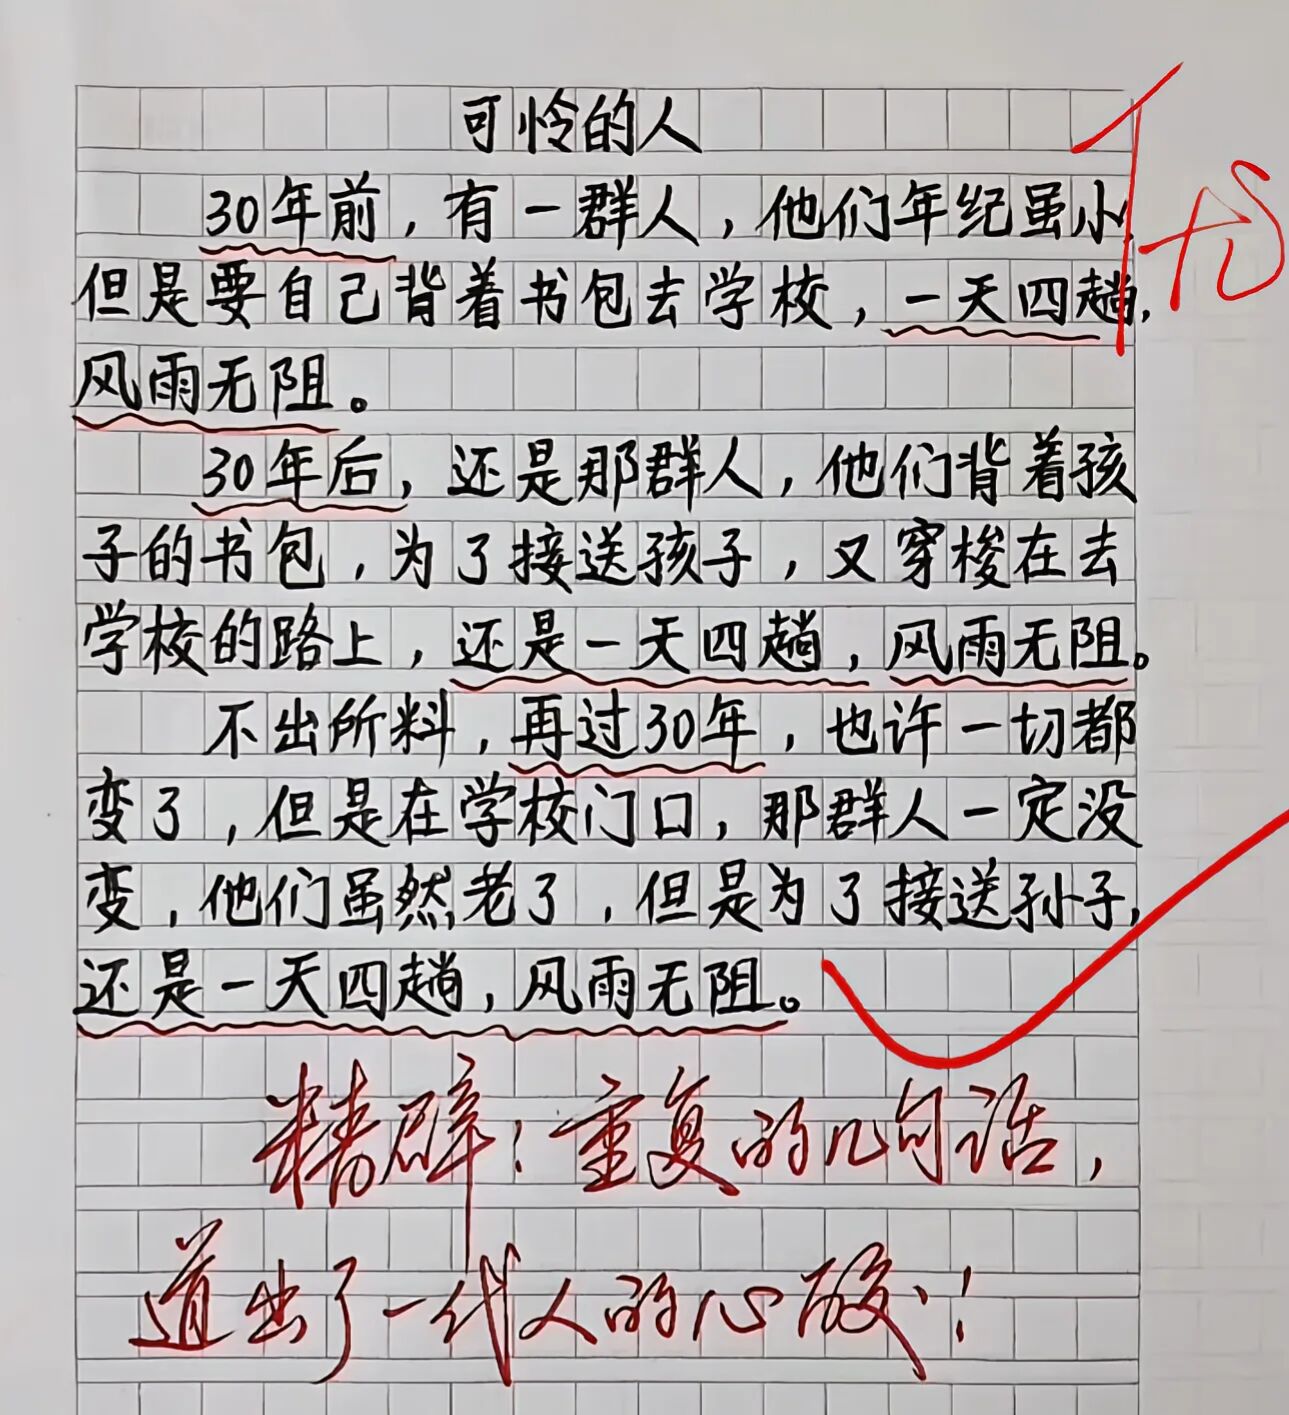 可怜的人
30年前，有一群人，他们年纪虽小，
但是要自己背着书包去学校，一天四趟，
风雨无阻。
30年后，还是那群人，他们背着孩
子的书包，为了接送孩子，又穿梭在去
学校的路上，还是一天四趟，风雨无阻。
不出所料，再过30年，也许一切都
变了，但是在学校门口，那群人一定没
变，他们虽然老了，但是为了接送孙子，
还是一天四趟，风雨无阻。
精辟！重复的几句话，
道出了一代人的心酸！